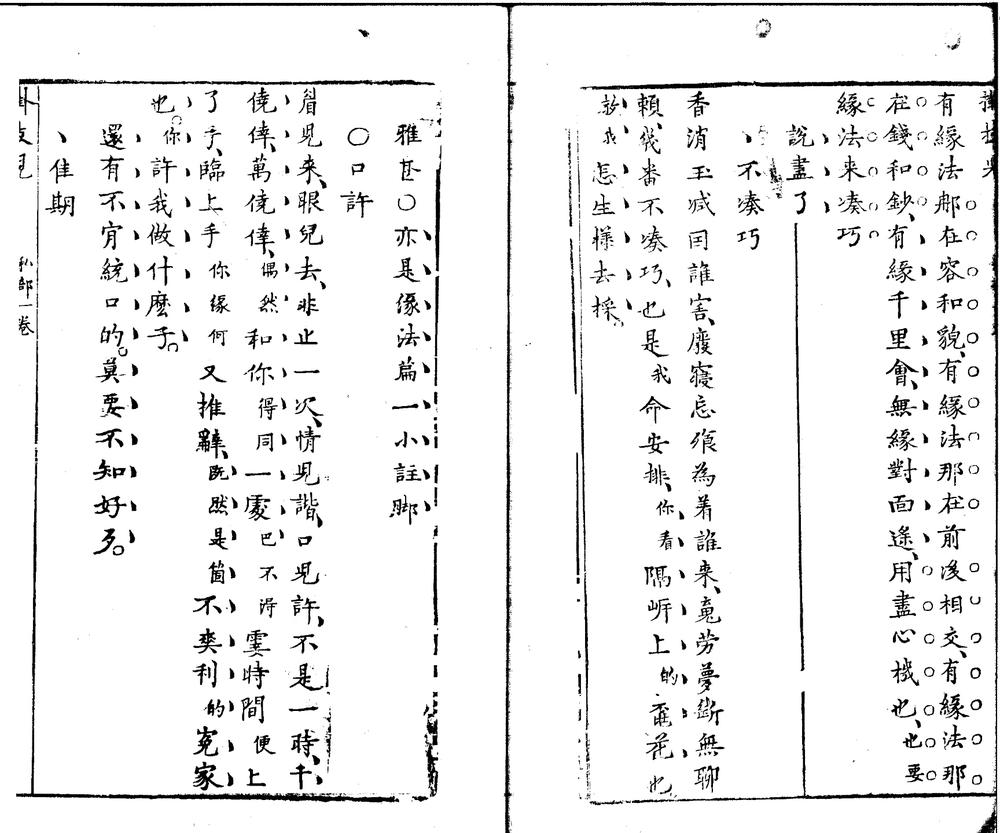 有緣法那在容和貌、有緣法那在前後相交、有緣法那
在錢和鈔、有緣千里會、無緣對面遙、用盡心機也、也要
緣法来凑巧
說盡了
不凑巧
香消玉减因誰害、廢寢忘飱為着誰来、竟劳夢斷無聊
賴、幾番不凑巧、也是我命安排、你看隔岍上的花也
教我怎生樣去採。
雅甚〇亦是緣法篇一小註脚
〇口許
眉皃来、眼兒去、非止一次、情皃諧、口皃許、不是一時、千
僥倖、萬僥倖、偶然和你得同一處巴不得霎時間便上
了手、臨上手你緣何又推辭、既然是箇不爽利的冤家
也。你許我做什麽子。
還有不肯統口的。莫要不知好歹。
佳期
掛枝兒
私部一卷